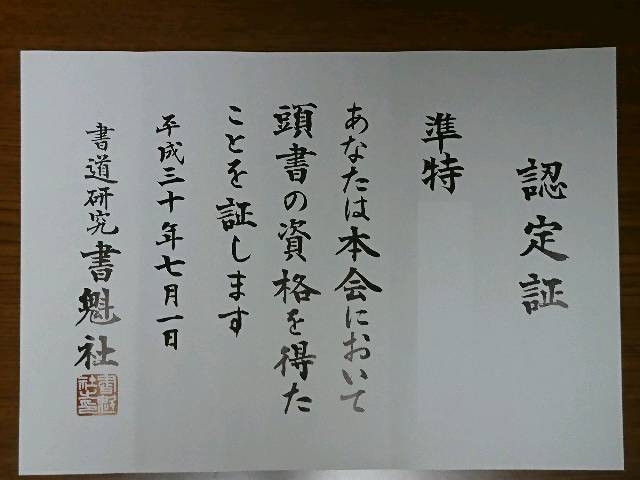 認定証
準特
あなたは本会において
頭書の資格を得た
ことを証します
平成三十年七月一日
書道研究書魁社